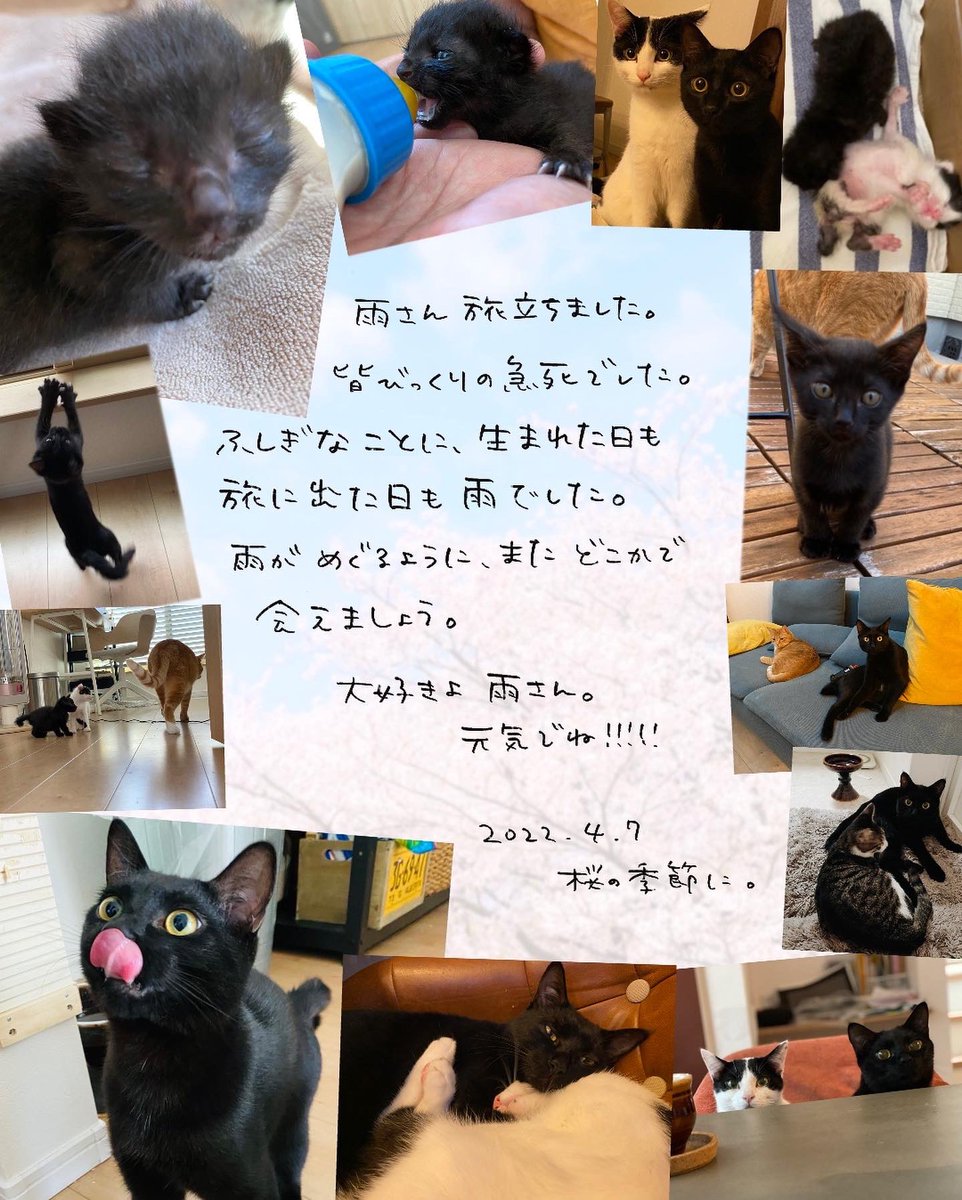 雨さん 旅立ちました。
皆びっくりの急死でした。
ふしぎなことに、生まれた日も
旅に出た日も 雨でした。
雨が めぐるように、また どこかで
会えましょう。
大好きよ 雨さん。
元気でね!!!!!
2022.4.7
桜の季節に。
36-6947